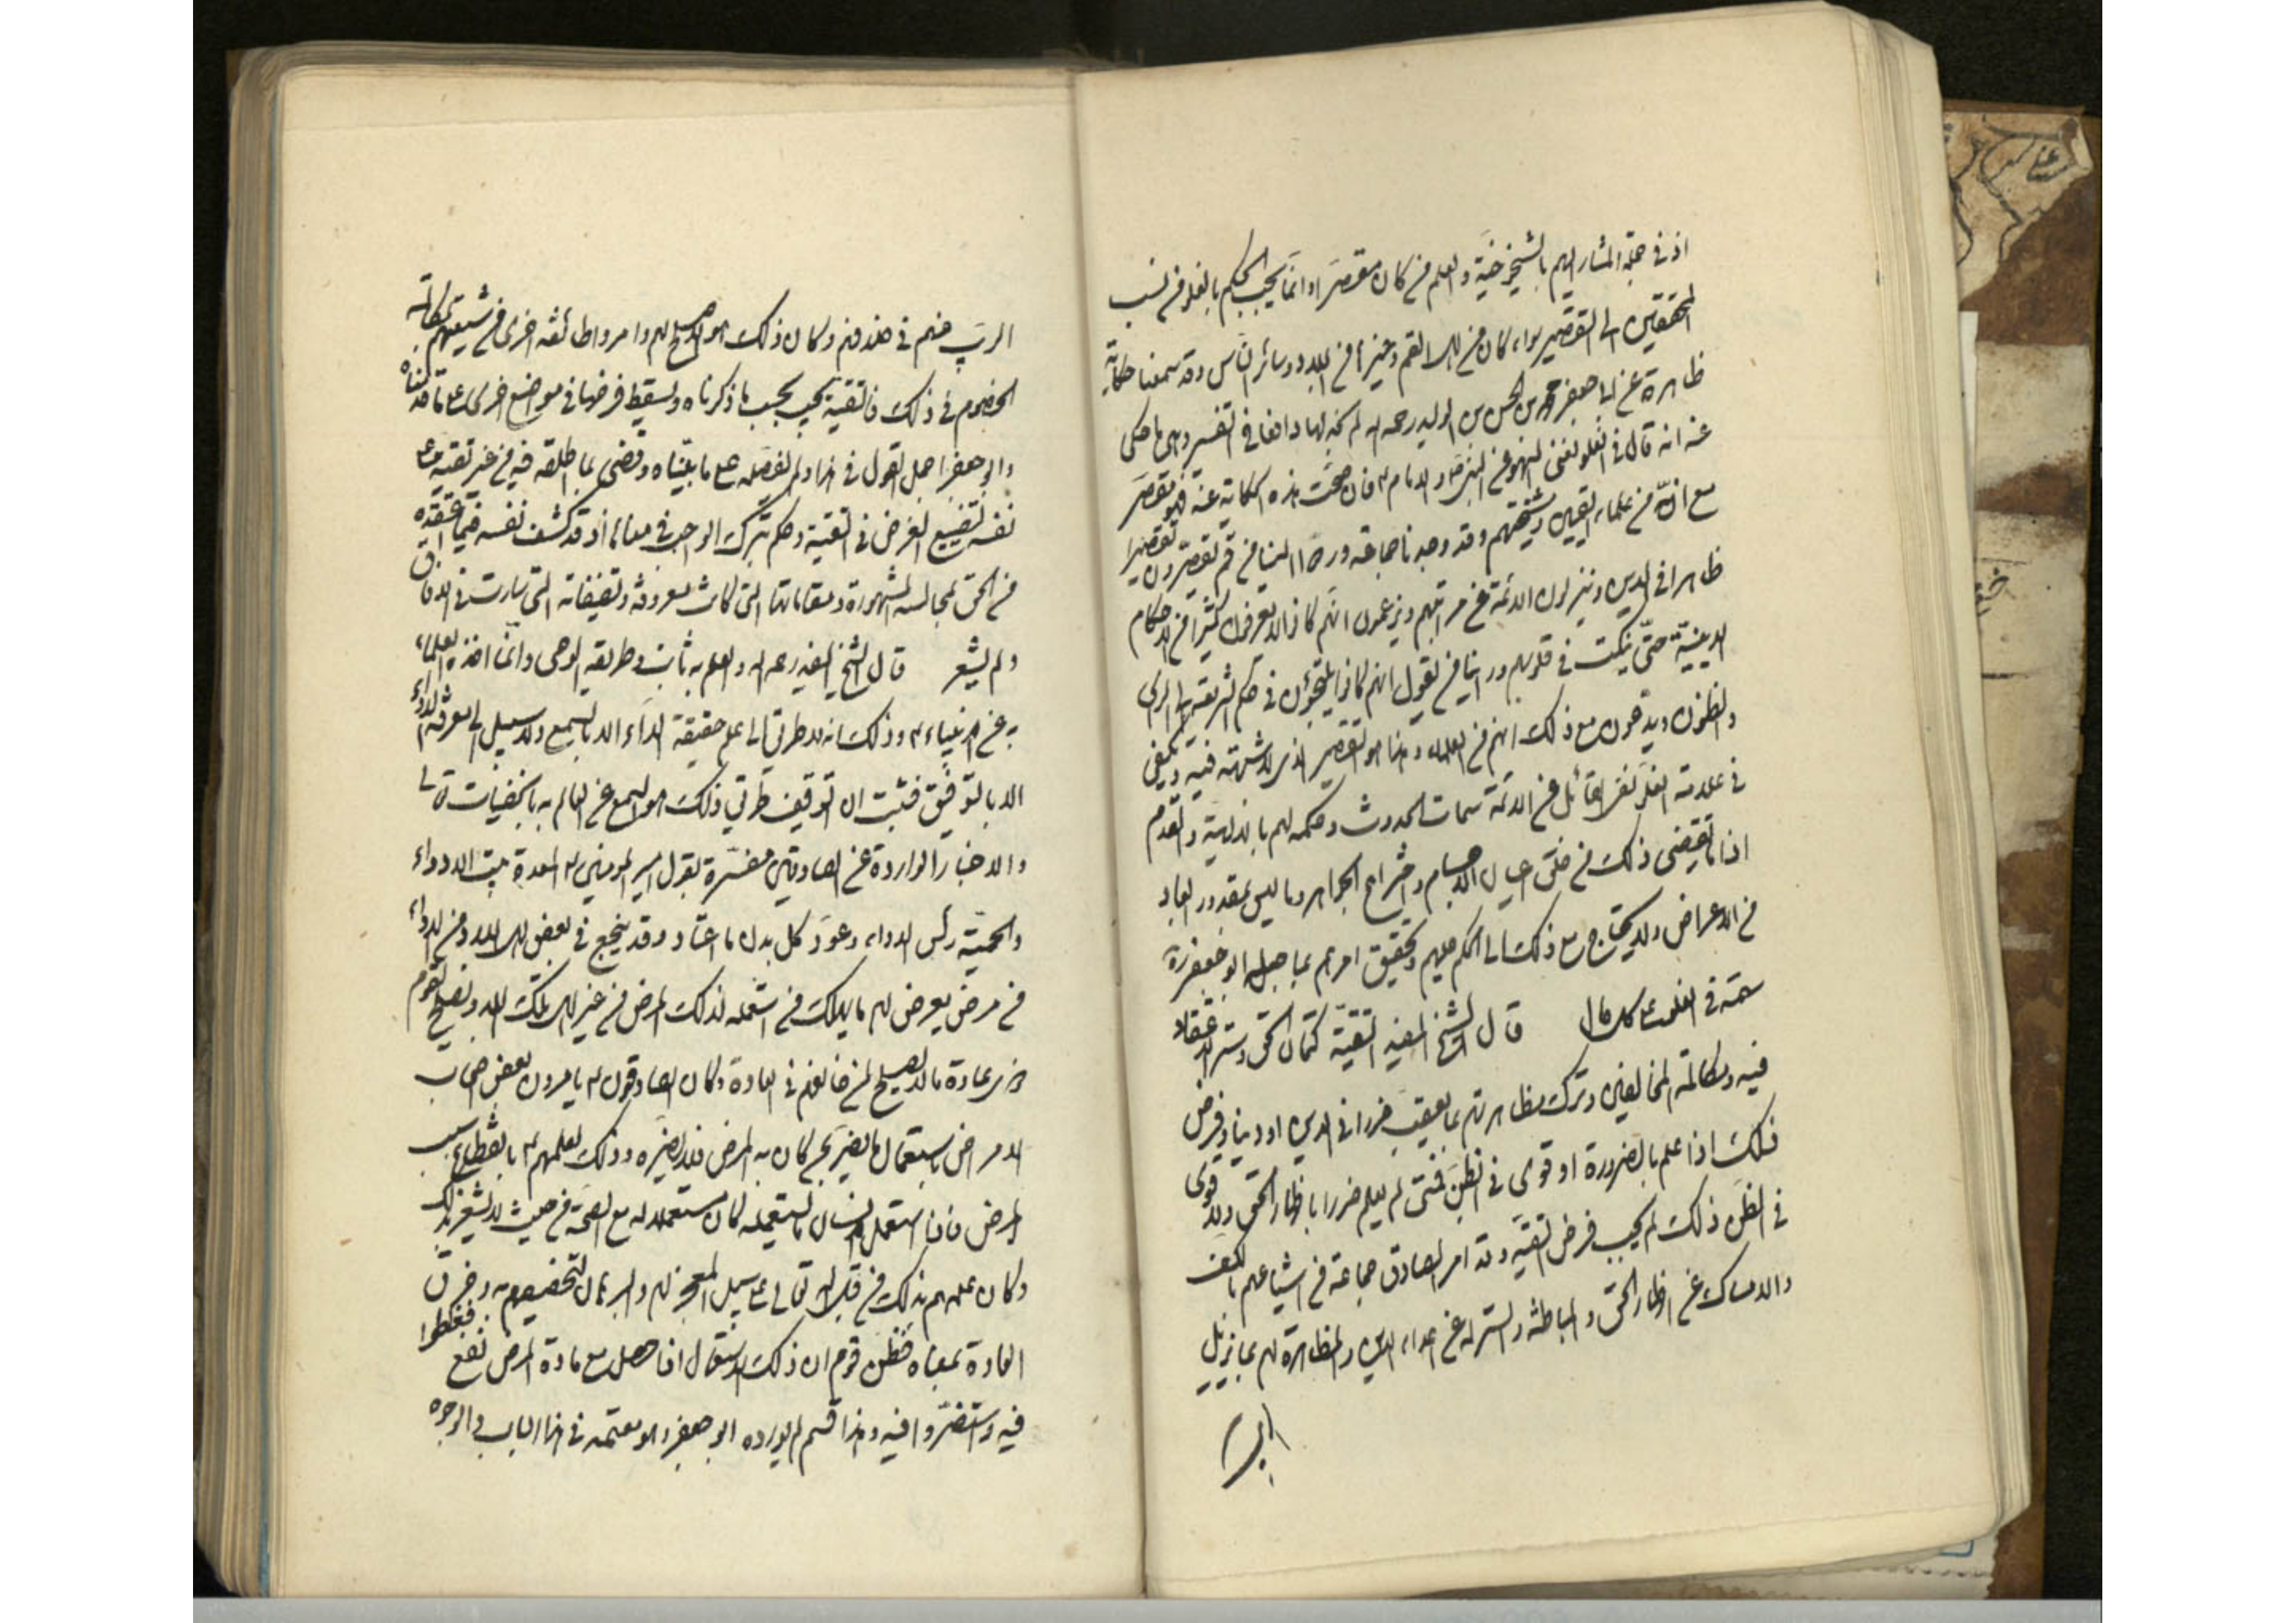 اذ في جملة المشار اليهم بالشيخوخية والعلم من كان مقصرا وانما يجب الحكم بالغلو من نسب
المحققين الى التقصير سواء كان من اهل القم وغيرها من البلاد وسائر الناس وقد سمعنا حكاية
ظاهرة عن ابي جعفر محمد بن الحسن بن الوليد رحمه الله لم نجد لها دافعا في التفسير وهي ما حكى
عنه انه قال في الغلو نفى السهو عن النبي ص والامام ع فان صحت هذه الحكاية عنه فهو مقصر
مع انه من علماء القميين ومشيختهم وقد وجدنا جماعة وردوا الينا من قم يقصرون تقصيرا
ظاهرا في الدين وينزلون الائمة عن مراتبهم ويزعمون انهم كانوا لا يعرفون كثيرا من الاحكام
الدينية حتى ينكت في قلوبهم وراينا من يقول انهم كانوا يلتجؤن في حكم الشريعة الى الراى
والظنون ويدعون مع ذلك انهم من العلماء وهذا هو التقصير الذي لا شبهة فيه ويكفي
في علامة الغلو نفى القائل عن الائمة سمات الحدوث وحكمه لهم بالالهية والقدم
اذا ما تقتضى ذلك من خلق اعيان الاجسام واختراع الجواهر وما ليس بمقدور العباد
من الاعراض ولا يحتاج مع ذلك الى الحكم عليهم وتحقيق امرهم بما جعله ابو جعفر ره
سمة في الغلو على كل حال قال الشيخ المفيد التقية كتمان الحق وستر الاعتقاد
فيه ومكاتمة المخالفين وترك مظاهرتهم بما يعقب ضررا في الدين او دنيا وفرض
ذلك اذا علم بالضرورة او قوى في الظن فمتى لم يعلم ضررا باظهار الحق ولا قوى
في الظن ذلك لم يجب فرض التقية وقد امر الصادق جماعة من اشياعهم بالكف
والامساك عن اظهار الحق والمباطنة والستر له عن اعداء الدين والمظاهرة لهم بما يزيل
الريب
الريب عنهم في خلافهم وكان ذلك هو الاصلح لهم وامروا طائفة اخرى من شيعتهم بمكالمة
الخصوم في ذلك فالتقية تجب بحسب ما ذكرناه ويسقط فرضها في مواضع اخرى على ما قدمناه
وابو جعفر اجمل القول في هذا ولم يفصله على ما بيناه وقضى بما اطلقه فيه من غير تقية على
نفسه لتضييع الغرض في التقية وحكم بترك الواجب في معناها اذ قد كشف نفسه فيما اعتقده
من الحق بمجالسه المشهورة ومقاماتها التي كانت معروفة وتصنيفاته التي سارت في الافاق
ولم يشعر قال الشيخ المفيد رحمه الله والعلم به ثابت وطريقه الوحى وانما اخذه العلماء
به عن الانبياء ع وذلك انه لا طريق الى علم حقيقة الداء الا بالسمع ولا سبيل الى معرفة الدواء
الا بالتوفيق فثبت ان التوقيف طريق ذلك هو السمع عن العالم به بالخفيات تعالى
والاخبار الواردة عن الصادقين مفسرة بقول امير المومنين ع المعدة بيت الادواء
والحمية رأس الدواء وعود كل بدن ما اعتاد وقد ينجع في بعض اهل البلاد من الدواء
من مرض يعرض لهم ما يهلك من استعمله لذلك المرض من غير اهل تلك البلاد ويصلح لقوم
ذوي عادة ما لا يصلح لمن خالفهم في العادة وكان الصادقون ع يامرون بعض اصحاب
الامراض باستعمال ما يضر بمن كان به المرض فلا يضره وذلك لعلمهم ع بانقطاع سبب
المرض فاذا استعمل الانسان ما يستعمله كان مستعملا له مع الصحة من حيث لا يشعر بذلك
وكان علمهم بذلك من قبل الله تعالى على سبيل المعجز لهم والبرهان لتخصيصهم به وخرق
العادة بمعناه فظن قوم ان ذلك الاستعمال اذا حصل مع مادة المرض نفع فغلطوا
فيه واستضروا فيه وهذا قسم لم يورده ابو جعفر وهو معتمد في هذا الباب والوجوه